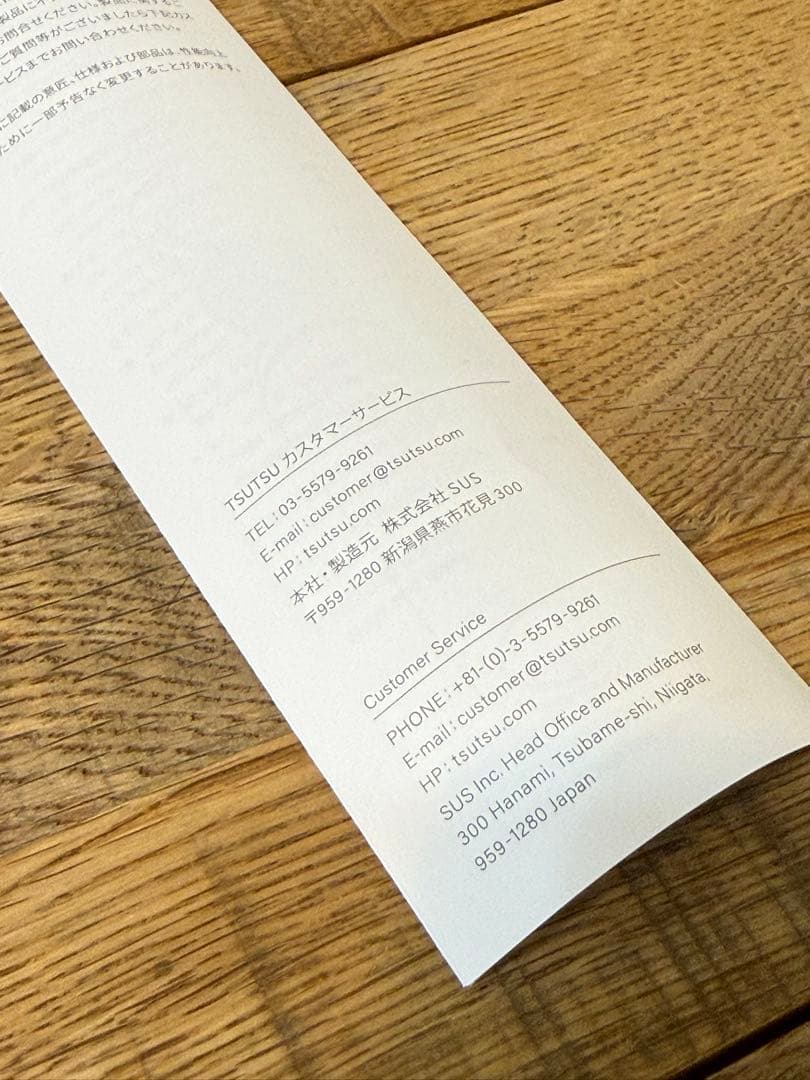 製品に
お問合せください。製品に関するご
ご質問等がございましたら下記カス
ービスまでお問い合わせください。
に記載の意匠、仕様および部品は、性能向上
ために一部予告なく変更することがあります。
TSUTSU カスタマーサービス
TEL：03-5579-9261
E-mail：customer@tsutsu.com
HP：tsutsu.com
本社・製造元 株式会社 SUS
〒959-1280 新潟県燕市花見 300
Customer Service
PHONE：+81-(0)-3-5579-9261
E-mail：customer@tsutsu.com
HP：tsutsu.com
SUS Inc. Head Office and Manufacturer
300 Hanami, Tsubame-shi, Niigata,
959-1280 Japan